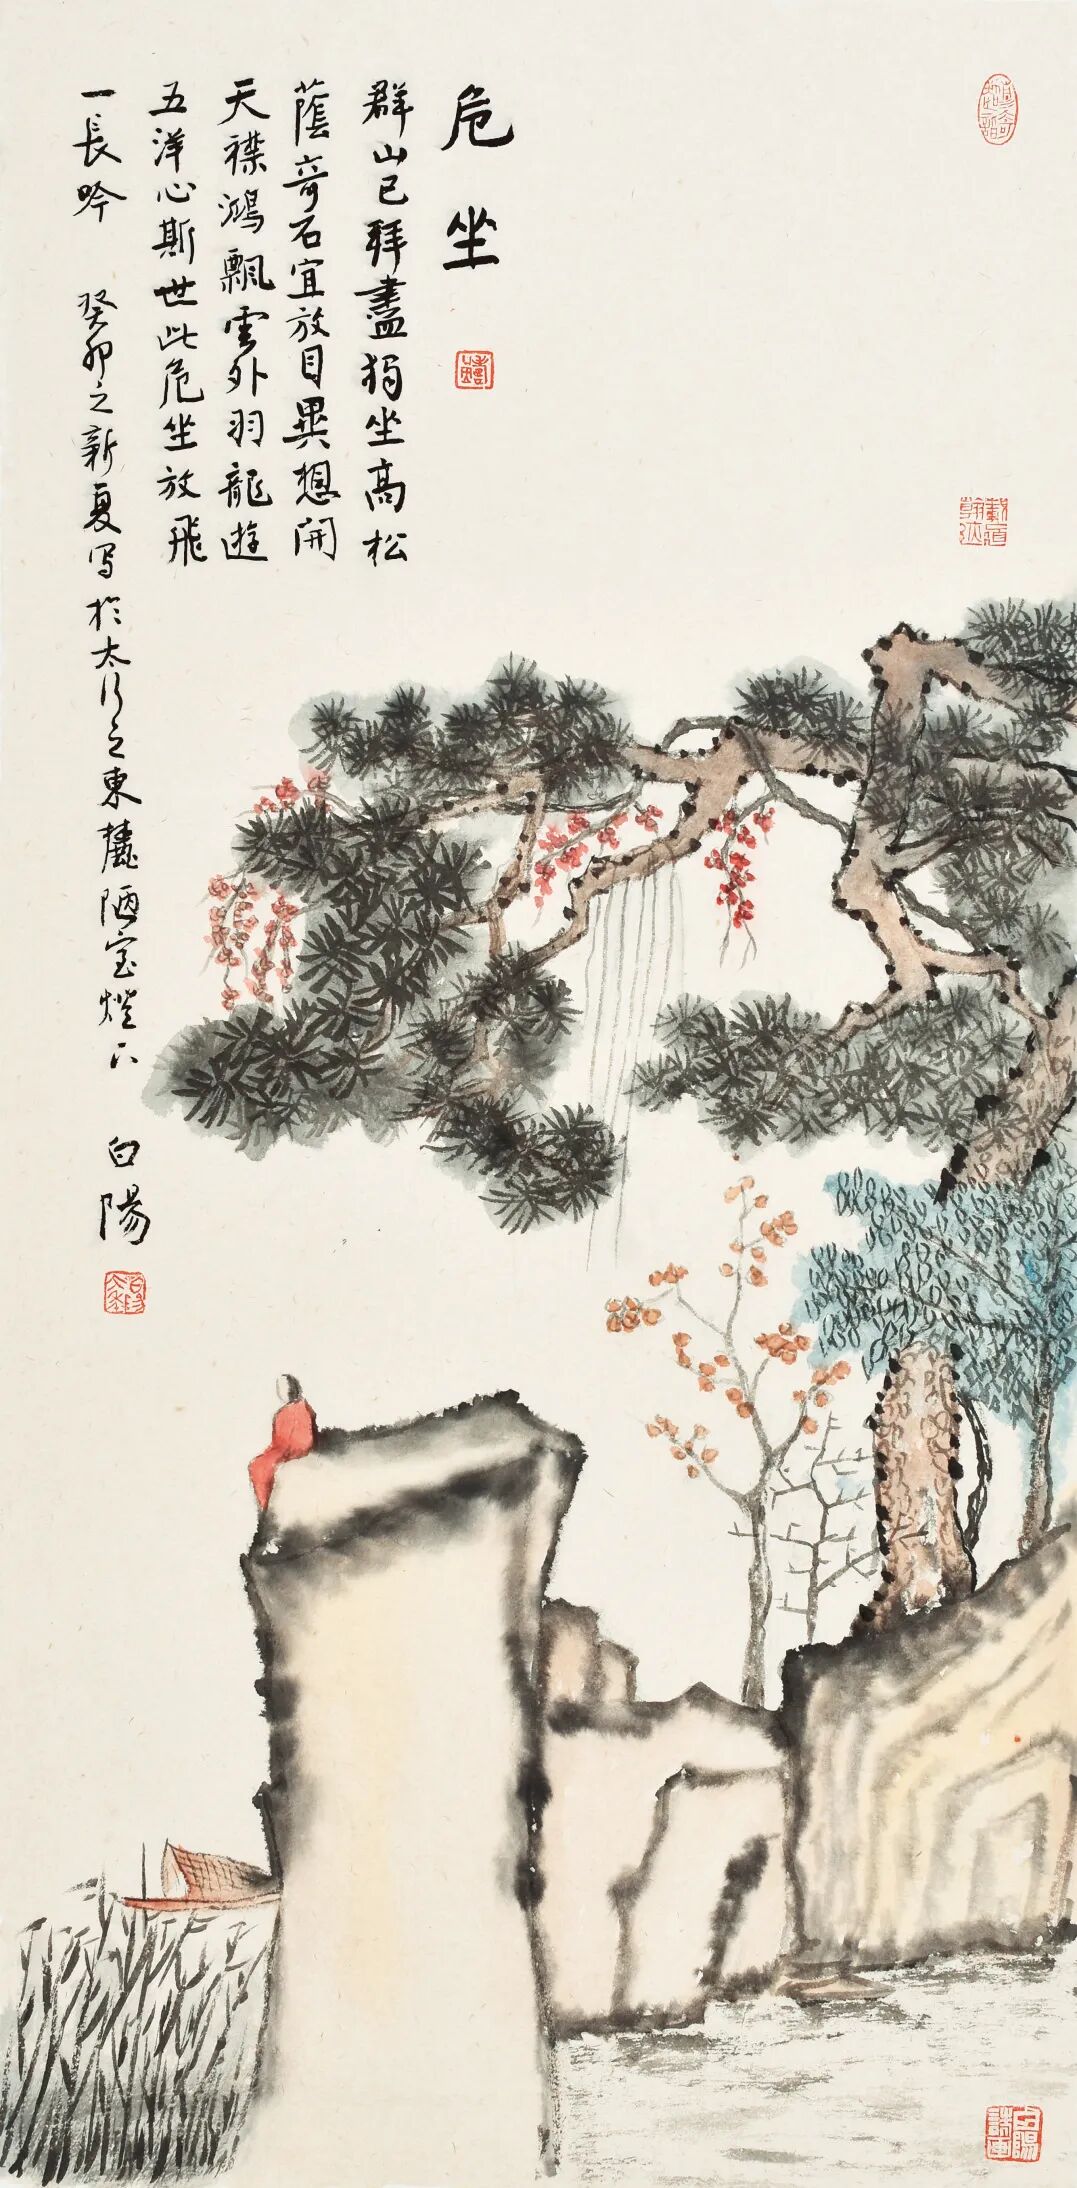 危坐
群山已拜盡獨坐高松
蔭奇石宜放目異想開
天襟鴻飄雲外羽龍遊
五洋心斯世此危坐放飛
一長吟 癸卯之新夏写於太行之東麓陋室燈下 白陽